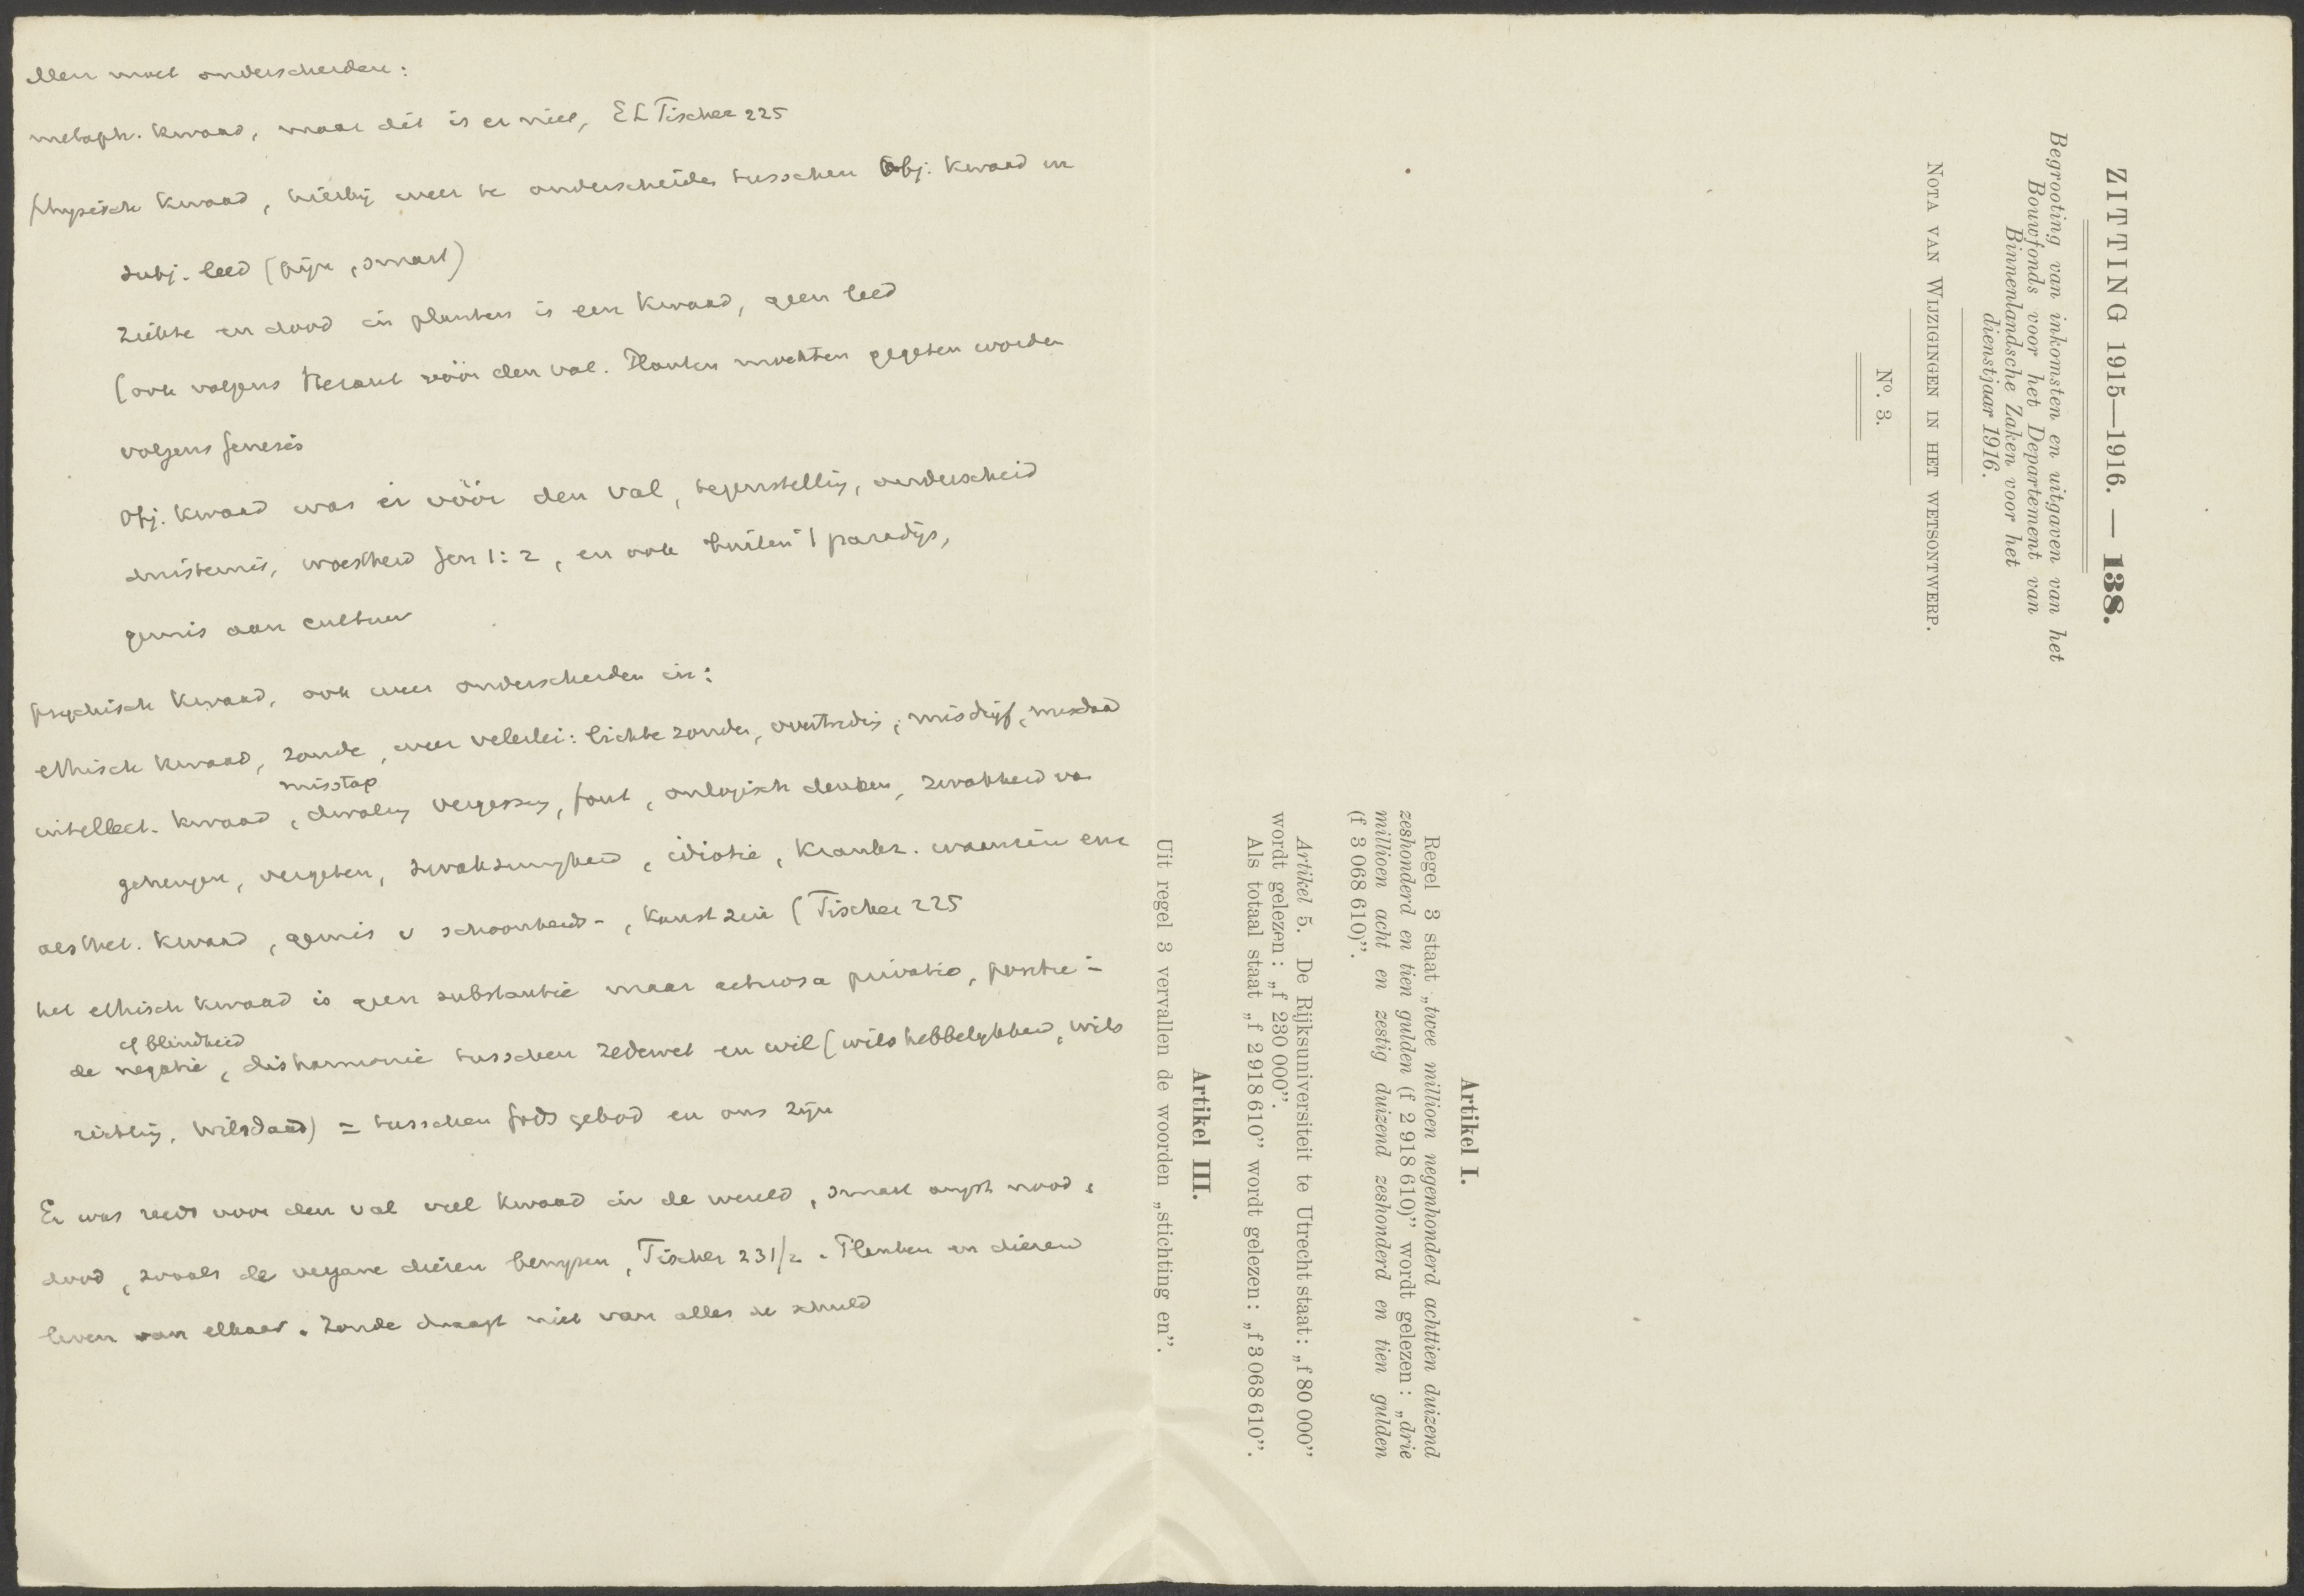 Men moet onderscheiden:
metaph. kwaad, maar dit is er niet, E L Fischer 225
physisch kwaad, hierbij weer te onderscheiden tusschen obj. kwaad en
subj. leed (pijn, smart)
ziekte en dood in planten is een kwaad, geen leed
(ook volgens Heraut vóór den val. Planten mochten gegeten worden
volgens Genesis
Obj. kwaad was er vóór den val, tegenstelling, onderscheid
duisternis, woestheid Gen 1:2, en ook buiten 't paradijs,
gemis aan cultuur
psychisch kwaad, ook weer onderscheiden in:
ethisch kwaad, zonde, weer velerlei: lichte zonden, overtreding, misdrijf, misdaad
misstap
intellect. kwaad, dwaling vergissing, fout, onlogisch denken, zwakheid van
geheugen, vergeten, zwakzinnigheid, idiotie, krankz. waanzin enz
aesthet. kwaad, gemis v schoonheids-, kunstzin (Fischer 225
het ethisch kwaad is geen substantie maar actuosa privatio, positie-
of blindheid
de negatie, disharmonie tusschen zedewet en wil (wilshebbelykheid, wils
richting, wilsdaad) = tusschen Gods gebod en ons zijn
Er was reeds voor den val veel kwaad in de wereld, smart angst nood,
dood, zooals de vergane dieren bewyzen, Fischer 231/2. Planten en dieren
leven van elkaar. Zonde draagt niet van alles de schuld
ZITTING 1915—1916. — 138.
Begrooting van inkomsten en uitgaven van het
Bouwfonds voor het Departement van
Binnenlandsche Zaken voor het
dienstjaar 1916.
NOTA VAN WIJZIGINGEN IN HET WETSONTWERP.
N°. 3.
Artikel I.
Regel 3 staat „twee millioen negenhonderd achttien duizend
zeshonderd en tien gulden (f 2 918 610)” wordt gelezen: „drie
millioen acht en zestig duizend zeshonderd en tien gulden
(f 3 068 610)”.
Artikel 5. De Rijksuniversiteit te Utrecht staat: „f 80 000”
wordt gelezen: „f 230 000”.
Als totaal staat „f 2 918 610” wordt gelezen: „f 3 068 610”.
Artikel III.
Uit regel 3 vervallen de woorden „stichting en”.